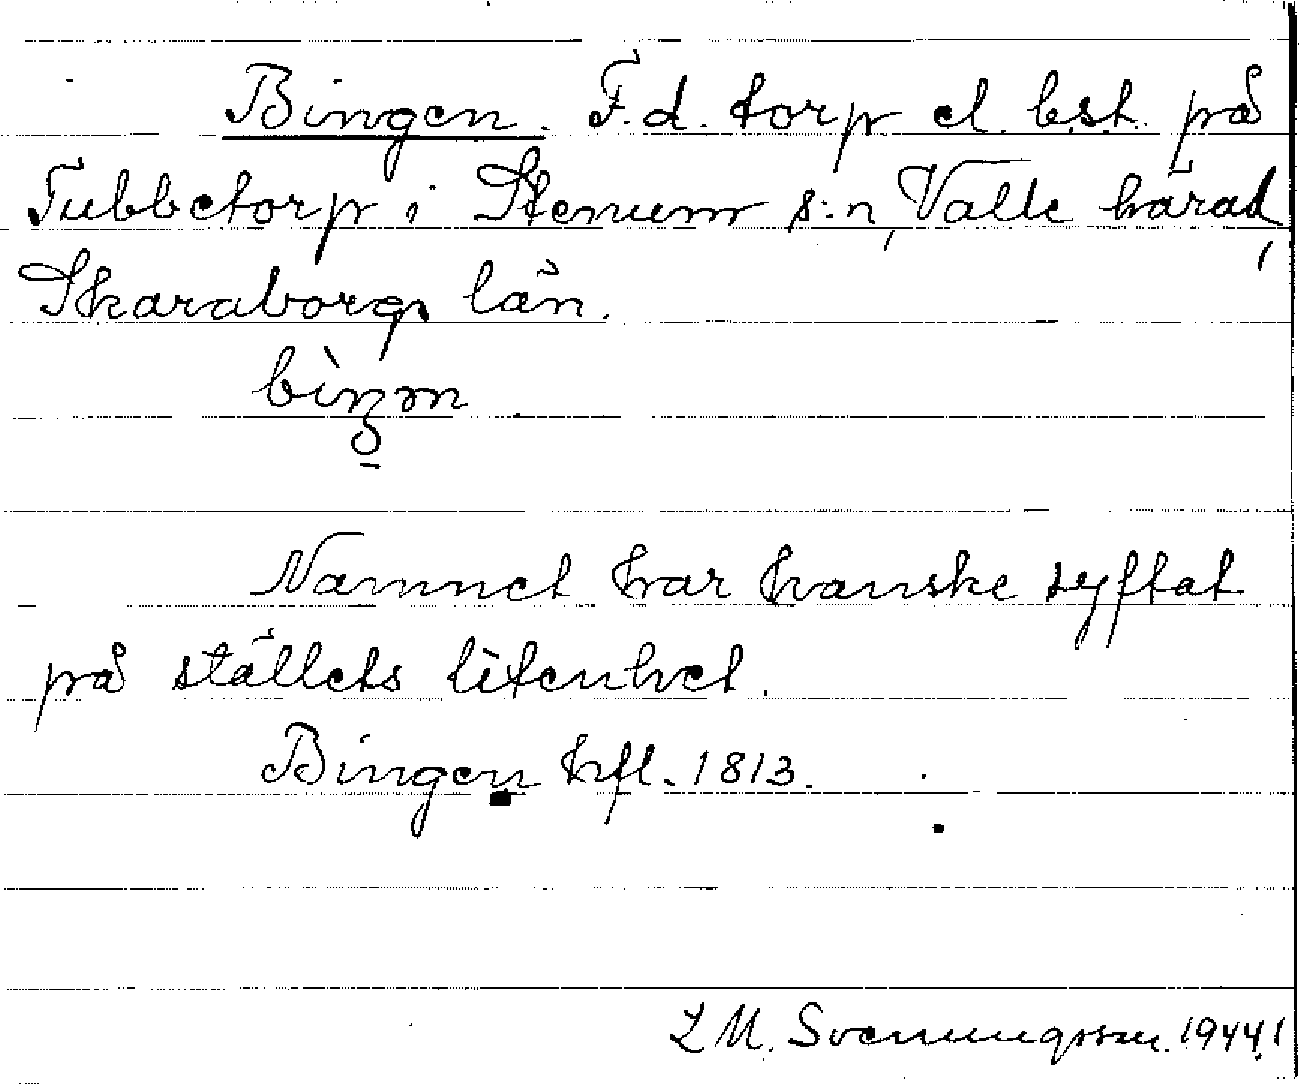 Bingen. F.d. torp el. bst. på
Tubbetorp i Stenum s:n, Valle härad,
Skaraborgs län.
Namnet har kanske syftat
på ställets litenhet.
Bingen hfl. 1813.
L M. Svenungsson. 1944.